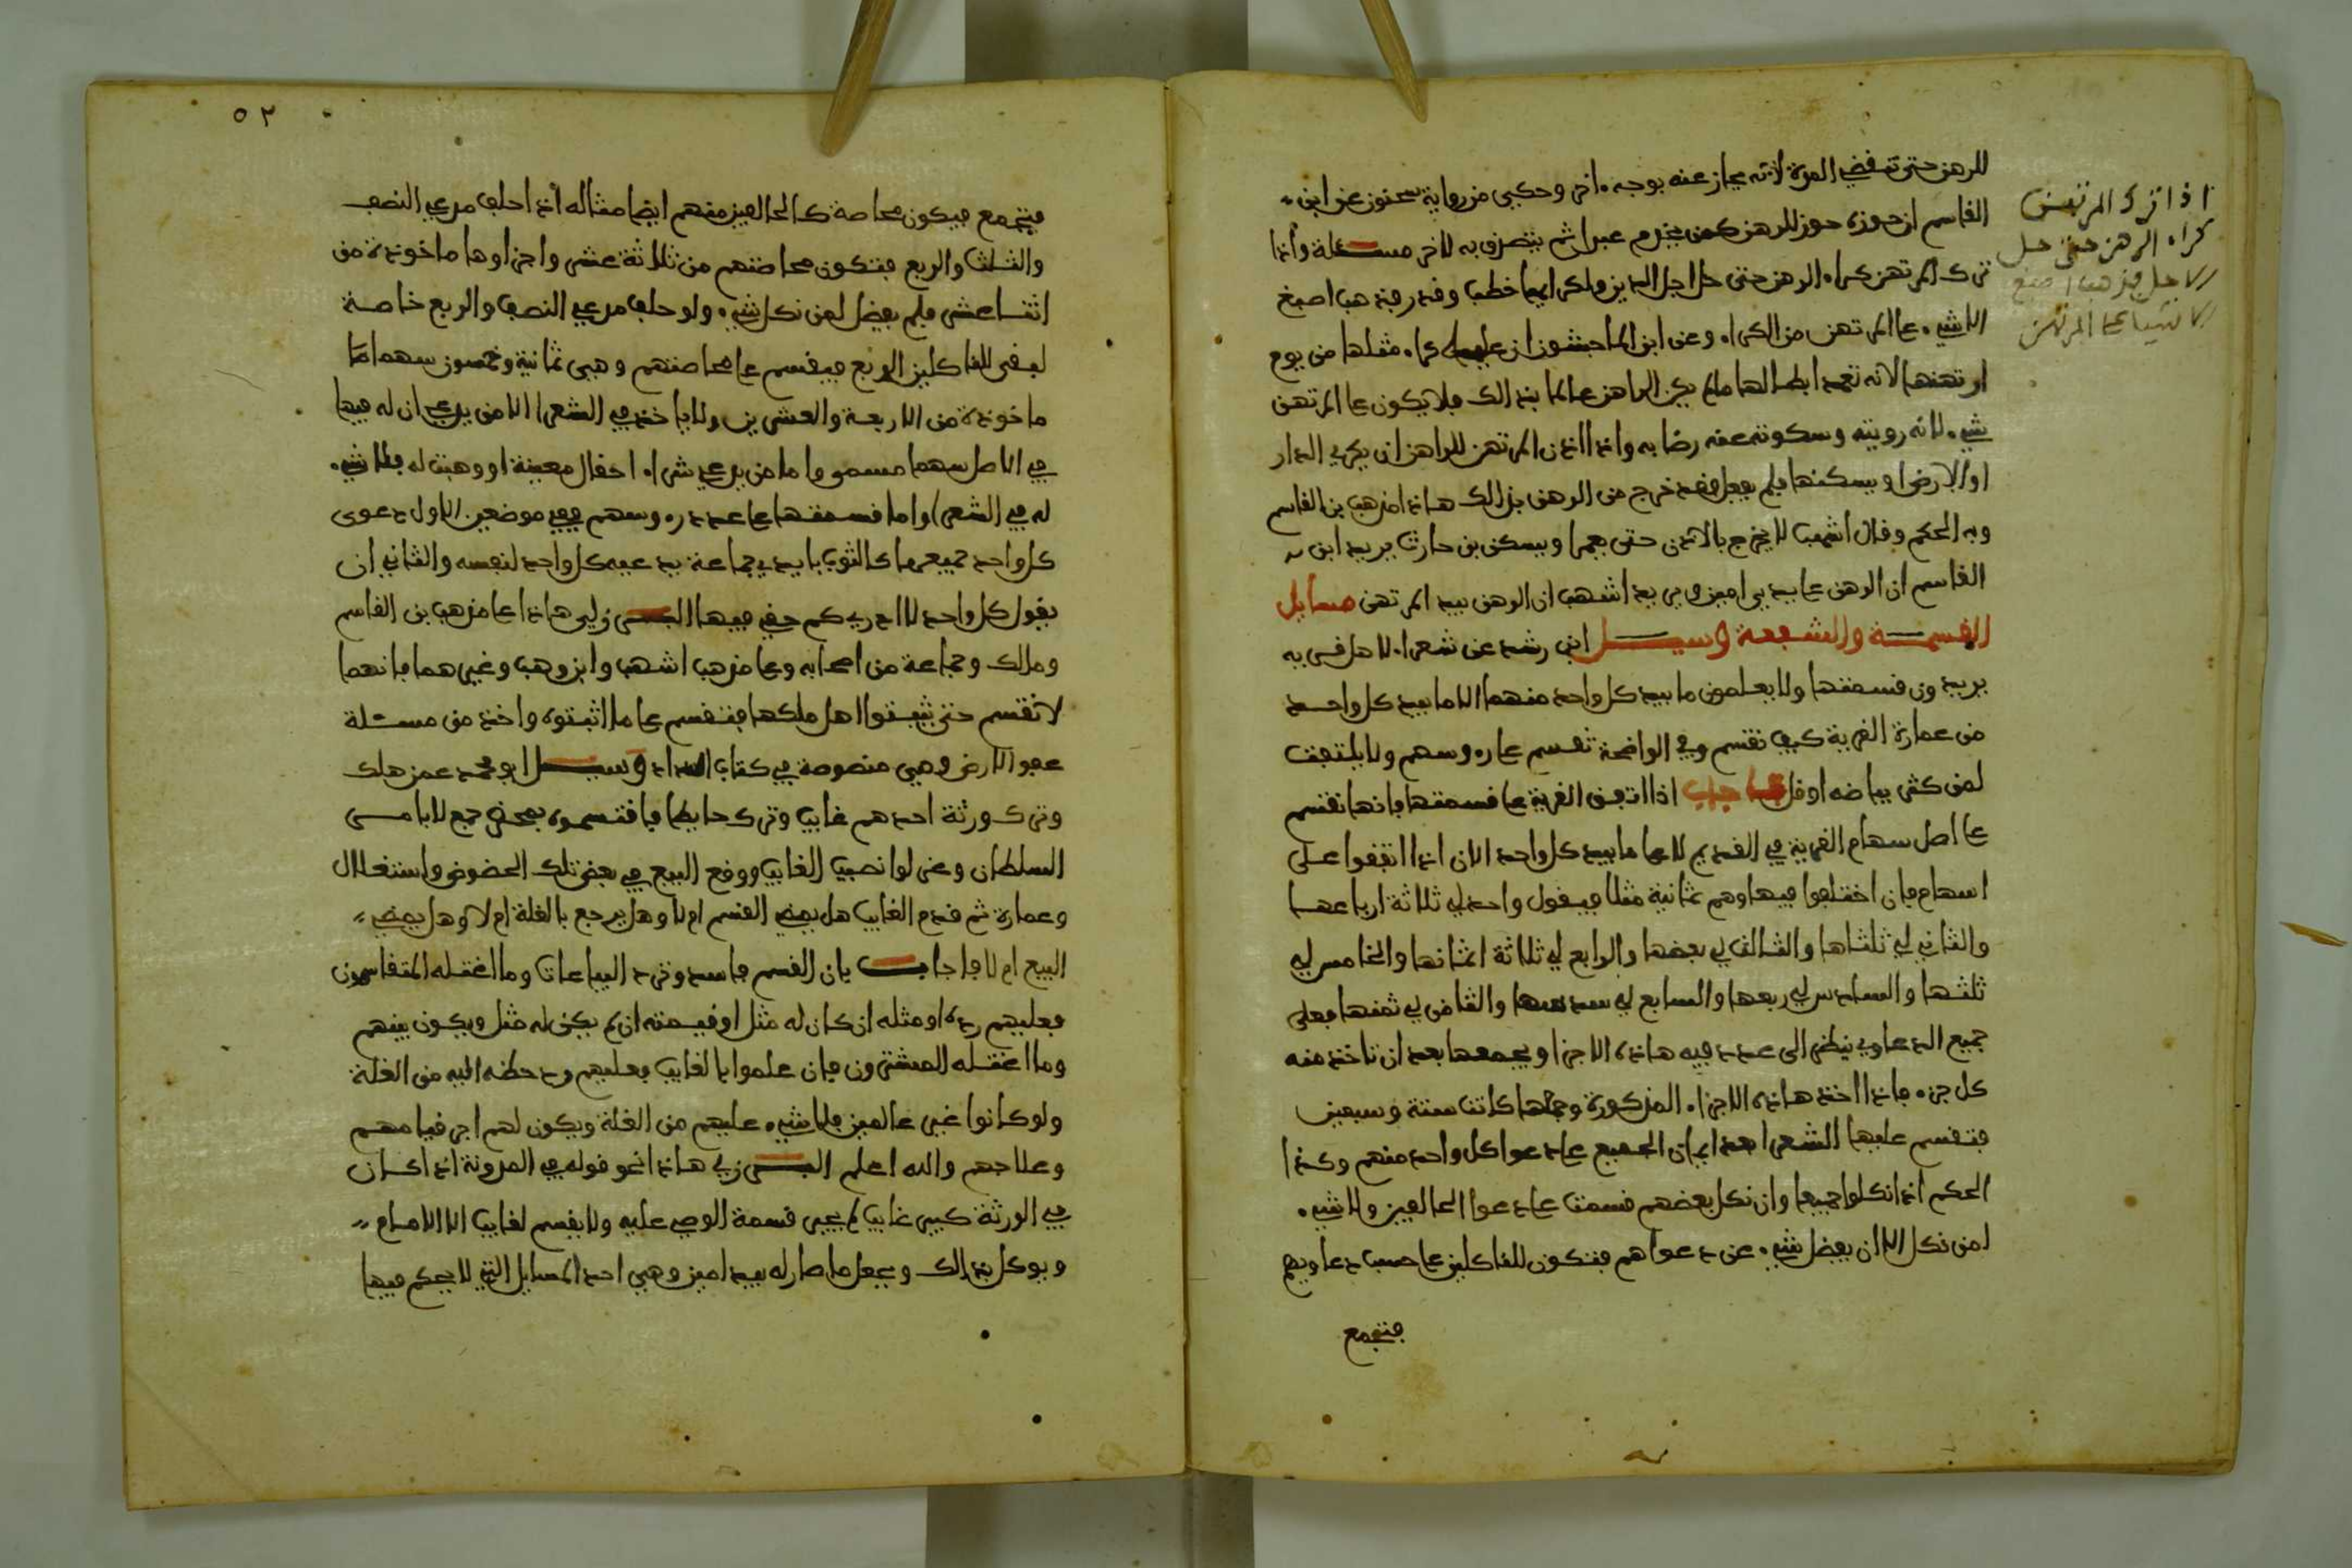 للرهن حتى تنقضي المدة لانه يجاز عنه بوجه اخر وحكى من رواية سحنون عن ابن
القاسم ان حوزه حوز للرهن كمن يخدم عبدا ثم يتصدق به لاخر مسئلة واذا
ترك المرتهن كراء الرهن حتى حل اجل الدين ولكرايها خطب وقدر فذهب اصبغ
الا شيء على المرتهن من الكراء وعن ابن الماجشون ان عليه كراء مثلها من يوم
ارتهنها لانه تعمد ابطالها ما لم يكن الراهن عالما بذالك فلا يكون على المرتهن
شيء لانه رويته وسكوته عنه رضا به واذا اذن المرتهن للراهن ان يكري الدار
او الارض او يسكنها فلم يفعل فقد خرج من الرهن بذالك هاذا مذهب بن القاسم
وبه الحكم وقال اشهب لا يخرج بالاذن حتى يعمرا ويسكن بن حارث يريد ابن
القاسم ان الرهن على يدي امين ويريد اشهب ان الرهن بيد المرتهن مسايل
القسمة والشفعة وسيل ابن رشد عن شعراء لاهل قرية
يريدون قسمتها ولا يعلمون ما بيد كل واحد منهما الا ما بيد كل واحد
من عمارة القرية كيف تقسم وفي الواضحة تقسم على روسهم ولا يلتفت
لمن كثر بياضه او قل فاجاب اذا اتفق القرية على قسمتها فانها تقسم
على اصل سهام القرية في القديم لا على ما بيد كل واحد الان اذا اتفقوا على
اسهام فان اختلفوا فيها وهم ثمانية مثلا فيقول واحد لي ثلاثة ارباعها
والثاني لي ثلثاها والثالث لي بعضها والرابع لي ثلاثة اثمانها والخامس لي
ثلثها والسادس لي ربعها والسابع لي سدسها والثامن لي ثمنها فعلى
جميع الدعاوي ينظر الى عدد فيه هاذه الاجزا ويجمعها بعد ان تاخذ منه
كل جزء فاذا اخذ هاذه الاجزاء المذكورة وجملها كانت ستة وسبعين
فتقسم عليها الشعرا بعد ايمان الجميع على دعوا كل واحد منهم وكذا
الحكم اذا نكلوا جميعا وان نكل بعضهم قسمت على دعوا الحالفين ولا شيء
لمن نكل الا ان يفضل شيء عن دعواهم فتكون للناكلين على حسب دعاويهم
فتجمع
اذا ترك المرتهن
كراء الرهن حتى حل
الاجل فذهب اصبغ
لا شيا على المرتهن
٥٢
فتجمع فيكون محاصة كالحالفين منهم ايضا مثاله اذا حلف مدعي النصف
والثلث والربع فتكون محاصتهم من ثلاثة عشر واجزاوها ماخوذة من
اثنا عشر فلم يفضل لمن نكل شيء ولو حلف مدعي النصف والربع خاصة
لبقى للناكلين الربع فيقسم على محاصتهم وهي ثمانية وخمسون سهما
ماخوذة من الاربعة والعشرين ولا ياخذ في الشعرا الا من يدعي ان له فيها
في الاصل سهما مسمى واما من يدعي شراء احقال معينة او وهبت له فلا شيء
له في الشعرا واما قسمتها على عدد روسهم ففي موضعين الاول دعوى
كل واحد جميعها كالثوب بايدي جماعة يدعيه كل واحد لنفسه والثاني ان
يقول كل واحد لا ادري كم حقي فيها البرزلي هاذا على مذهب بن القاسم
ومالك وجماعة من اصحابه وعلى مذهب اشهب وابن وهب وغيرهما فانهما
لا تقسم حتى يثبتوا اهل ملكها فتقسم على ما اثبتوه واخذ من مسئلة
عفو الارض وهي منصوصة في كتاب السداد وسيل ابو محمد عمن هلك
وترك ورثة احدهم غايب وترك حايطا فاقتسموه بمحضر جمع لا بامر
السلطان وعزلوا نصيب الغايب ووقع البيع في بعض تلك الحضوض واستغلال
وعمارة ثم قدم الغايب هل يمضي القسم ام لا وهل يرجع بالغلة ام لا وهل يمضي
البيع ام لا فاجاب بان القسم فاسد وترد البياعات وما اغتله المتقاسمون
فعليهم رده او مثله ان كان له مثل او قيمته ان لم يكن له مثل ويكون بينهم
وما اغتله المشترون فان علموا بالغايب فعليهم رد حظه اليه من الغلة
ولو كانوا غير عالمين فلا شيء عليهم من الغلة ويكون لهم اجر قيامهم
وعلاجهم والله اعلم البرزلي هاذا نحو قوله في المدونة اذا كان
في الورثة كبير غايب لم يجز قسمة الوصي عليه ولا يقسم لغايب الا الامام
ويوكل بذالك ويجعل ما صار له بيد امين وهي احد المسايل التي لا يحكم فيها